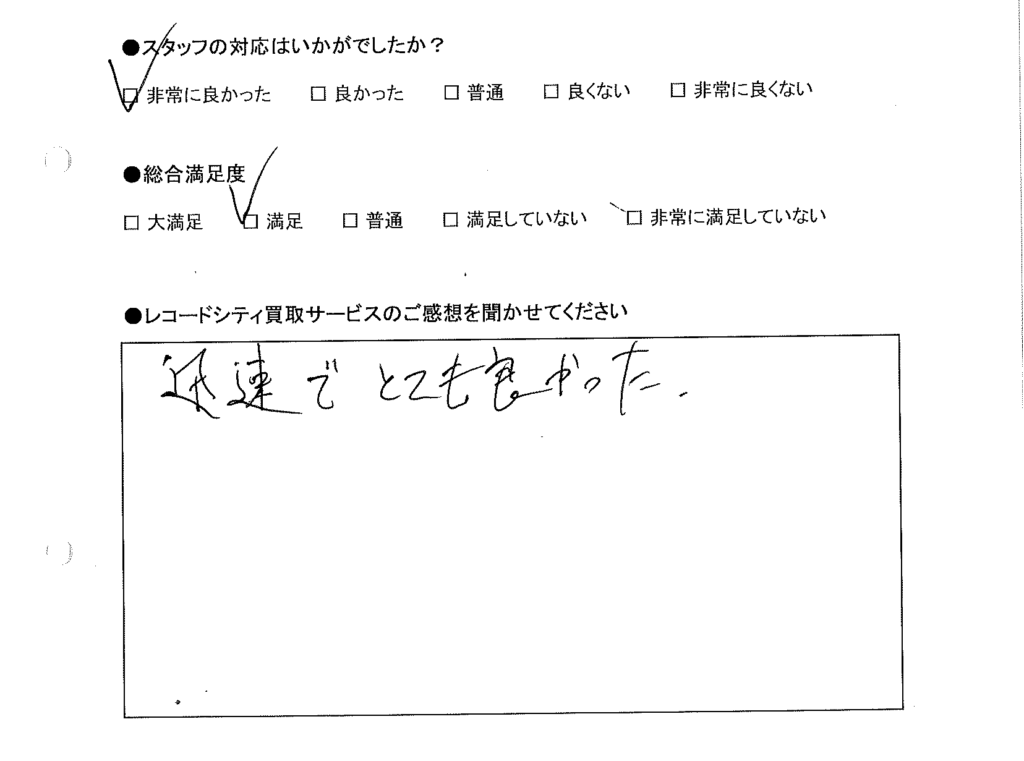 ●スタッフの対応はいかがでしたか？
□ 非常に良かった □ 良かった □ 普通 □ 良くない □ 非常に良くない
●総合満足度
□ 大満足 □ 満足 □ 普通 □ 満足していない □ 非常に満足していない
●レコードシティ買取サービスのご感想を聞かせてください
迅速でとても良かった.